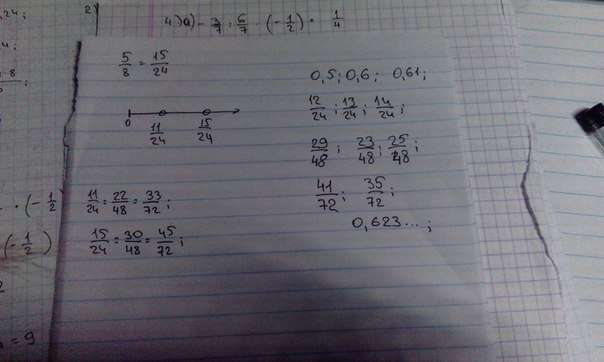 24;
2)
4.) a) - 3/7 : 6/7 · (-1/2) = 1/4
5/8 = 15/24
0 11/24 15/24
11/24 = 22/48 = 33/72;
15/24 = 30/48 = 45/72;
0,5; 0,6; 0,61;
12/24; 13/24; 14/24;
29/48; 23/48; 25/48;
41/72; 35/72;
0,623...;
· (-1/2
(-1/2)
= 9